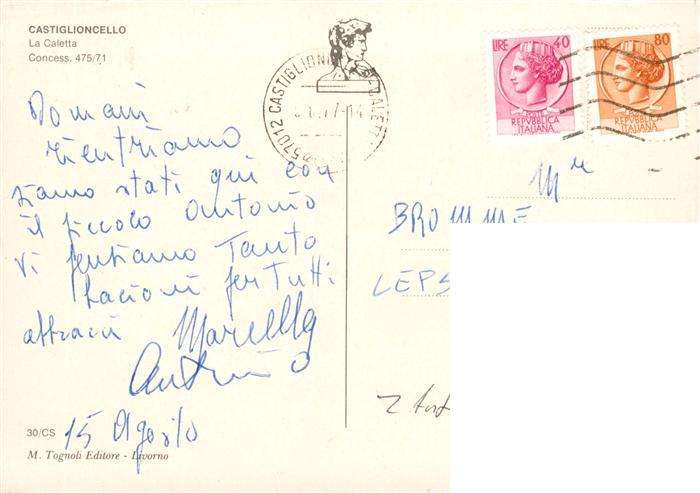 CASTIGLIONCELLO
La Caletta
Concess. 475/71
57012 CASTIGLION
LIRE 40
POSTE
REPVBBLICA
ITALIANA
LIRE 80
POSTE
REPVBBLICA
ITALIANA
Domani
rientriamo
siamo stati qui con
il piccolo Antonio
Vi pensiamo Tanto
bacioni per Tutti
abbracci Marcella
Antonio
15 Agosto
30/CS
M. Tognoli Editore - Livorno
Mr
BROMMAE
LEPS